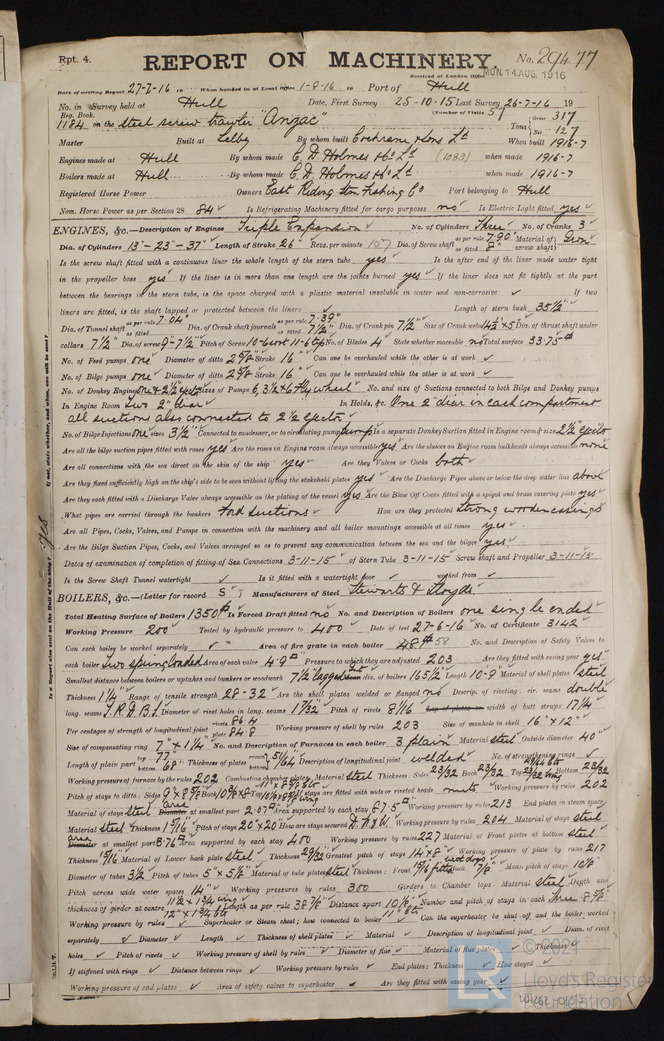 Rpt. 4.
REPORT ON MACHINERY. No. 29477
Received at London Office MON. 14 AUG. 1916
Date of writing Report 27-7-16 When handed in at Local Office 1-8-16 Port of Hull
No. in Survey held at Hull Date, First Survey 25-10-15 Last Survey 26-7-16 19
Reg. Book. (Number of Visits 57
1184 on the steel screw trawler "Anzac" Tons Gross 317 Net 127
Master Built at Selby By whom built Cochrane & Sons Ld When built 1916-7
Engines made at Hull By whom made C. D. Holmes & Co Ld (1083) when made 1916-7
Boilers made at Hull By whom made C. D. Holmes & Co Ld when made 1916-7
Registered Horse Power Owners East Riding Stm Fishing Co Port belonging to Hull
Nom. Horse Power as per Section 28 84 Is Refrigerating Machinery fitted for cargo purposes no Is Electric Light fitted yes
ENGINES, &c.—Description of Engines Triple Expansion No. of Cylinders Three No. of Cranks 3
Dia. of Cylinders 13"-23"-37" Length of Stroke 26" Revs. per minute 107 Dia. of Screw shaft as per rule 7.90" as fitted 8" Material of screw shaft Iron
Is the screw shaft fitted with a continuous liner the whole length of the stern tube yes Is the after end of the liner made water tight
in the propeller boss yes If the liner is in more than one length are the joints burned yes If the liner does not fit tightly at the part
between the bearings in the stern tube, is the space charged with a plastic material insoluble in water and non-corrosive ✓ If two
liners are fitted, is the shaft lapped or protected between the liners ✓ Length of stern bush 35½"
Dia. of Tunnel shaft as per rule 7.04" as fitted Dia. of Crank shaft journals as per rule 7.39" as fitted 7½" Dia. of Crank pin 7½" Size of Crank webs 14½" x 5" Dia. of thrust shaft under
collars 7½" Dia. of screw 9'-7½" Pitch of Screw No. of Blades 4 State whether moveable no Total surface 33.75
No. of Feed pumps one Diameter of ditto 2⅝" Stroke 16" Can one be overhauled while the other is at work ✓
No. of Bilge pumps one Diameter of ditto 2⅝" Stroke 16" Can one be overhauled while the other is at work ✓
No. of Donkey Engines one & 2½" ejectr Sizes of Pumps 6, 3½ x 6 Fly wheel No. and size of Suctions connected to both Bilge and Donkey pumps
In Engine Room Two 2" diar In Holds, &c. One 2" diar in each compartment
all suctions also connected to 2½ ejectr
No. of Bilge Injections one sizes 3½" Connected to condenser, or to circulating pump pump Is a separate Donkey Suction fitted in Engine room & size 2½" ejectr
Are all the bilge suction pipes fitted with roses yes Are the roses in Engine room always accessible yes Are the sluices on Engine room bulkheads always accessible none
Are all connections with the sea direct on the skin of the ship yes Are they Valves or Cocks both
Are they fixed sufficiently high on the ship's side to be seen without lifting the stokehold plates yes Are the Discharge Pipes above or below the deep water line above
Are they each fitted with a Discharge Valve always accessible on the plating of the vessel yes Are the Blow Off Cocks fitted with a spigot and brass covering plate yes
What pipes are carried through the bunkers Ford suctions How are they protected strong wooden casings
Are all Pipes, Cocks, Valves, and Pumps in connection with the machinery and all boiler mountings accessible at all times yes
Are the Bilge Suction Pipes, Cocks, and Valves arranged so as to prevent any communication between the sea and the bilges yes
Dates of examination of completion of fitting of Sea Connections 3-11-15 of Stern Tube 3-11-15 Screw shaft and Propeller 3-11-15
Is the Screw Shaft Tunnel watertight ✓ Is it fitted with a watertight door ✓ worked from ✓
BOILERS, &c.—(Letter for record S) Manufacturers of Steel Stewarts & Lloyds
Total Heating Surface of Boilers 1350 Is Forced Draft fitted no No. and Description of Boilers one single ended
Working Pressure 200 Tested by hydraulic pressure to 400 Date of test 27-6-16 No. of Certificate 3142
Can each boiler be worked separately ✓ Area of fire grate in each boiler 48 58 No. and Description of Safety Valves to
each boiler Two spring loaded Area of each valve 4.9 Pressure to which they are adjusted 203 Are they fitted with easing gear yes
Smallest distance between boilers or uptakes and bunkers or woodwork 7½" lagged dia. of boilers 165½" Length 10-9" Material of shell plates steel
Thickness 1¼" Range of tensile strength 28-32 Are the shell plates welded or flanged no Descrip. of riveting: cir. seams double
long. seams T.R.D.B.S Diameter of rivet holes in long. seams 1 7/32" Pitch of rivets 8 1/16" width of butt straps 17¼"
Per centages of strength of longitudinal joint rivets 86.4 plate 84.8 Working pressure of shell by rules 203 Size of manhole in shell 16" x 12"
Size of compensating ring 7" x 1¼" No. and Description of Furnaces in each boiler 3 plain Material steel Outside diameter 40"
Length of plain part top 77" bottom 68" Thickness of plates crown bottom 51/64" Description of longitudinal joint welded No. of strengthening rings ✓
Working pressure of furnace by the rules 202 Combustion chamber plates: Material steel Thickness: Sides 23/32 Back 23/32 Top Bottom 23/32
Pitch of stays to ditto: Sides 9" x 8⅝" Back 10⅝ x 8 Top If stays are fitted with nuts or riveted heads nuts Working pressure by rules 202
Material of stays steel area at smallest part 2.07 Area supported by each stay 87.5 Working pressure by rules 213 End plates in steam space
Material steel Thickness 1 5/16" Pitch of stays 20" x 20" How are stays secured D.N.&W. Working pressure by rules 204 Material of stays steel
area at smallest part 8.76 Area supported by each stay 400 Working pressure by rules 227 Material of Front plates at bottom steel
Thickness 15/16 Material of Lower back plate steel Thickness 29/32 Greatest pitch of stays 14 x 8 Working pressure of plate by rules 217
Diameter of tubes 3½" Pitch of tubes 5" x 5⅛" Material of tube plates steel Thickness: Front 15/16 Back 7/8" Mean pitch of stays 10⅛"
Pitch across wide water spaces 14" Working pressures by rules 300 Girders to Chamber tops: Material steel Depth and
thickness of girder at centre Length as per rule 38⅞" Distance apart 10⅛" Number and pitch of stays in each three 8⅝"
Working pressure by rules ✓ Superheater or Steam chest; how connected to boiler ✓ Can the superheater be shut off and the boiler worked
separately ✓ Diameter ✓ Length ✓ Thickness of shell plates ✓ Material ✓ Description of longitudinal joint ✓ Diam. of rivet
holes ✓ Pitch of rivets ✓ Working pressure of shell by rules ✓ Diameter of flue ✓ Material of flue plates ✓ Thickness ✓
If stiffened with rings ✓ Distance between rings ✓ Working pressure by rules ✓ End plates: Thickness ✓ How stayed ✓
Working pressure of end plates ✓ Area of safety valves to superheater ✓ Are they fitted with easing gear ✓
Is a Report also sent on the Hull of the Ship? Yes
If not, state whether, and when, one will be sent?
© 2021
Lloyd's Register
Foundation